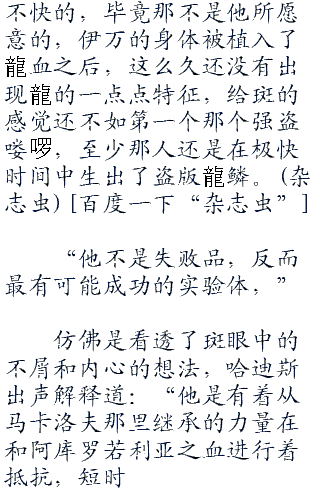 不快的，毕竟那不是他所愿
意的，伊万的身体被植入了
龍血之后，这么久还没有出
现龍的一点点特征，给斑的
感觉还不如第一个那个强盗
喽啰，至少那人还是在极快
时间中生出了盗版龍鳞。(杂
志虫)[百度一下“杂志虫”]
“他不是失败品，反而
最有可能成功的实验体，”
仿佛是看透了斑眼中的
不屑和内心的想法，哈迪斯
出声解释道：“他是有着从
马卡洛夫那里继承的力量在
和阿库罗若利亚之血进行着
抵抗，短时